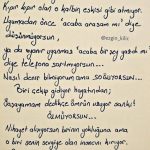 Kıpır kıpır olan o kalbin eskisi gibi atmıyor.
Uyumadan önce 'acaba arasam mı' diye
düşünmüyorsun,
@ezgin_kilic
ya da uyanır uyanmaz 'acaba bir şey yazdı mı'
diye telefona sarılmıyorsun...
Nasıl desem bilmiyorum ama SOĞUYORSUN...
Biri çekip gidiyor hayatından;
Yaşayamam dedikçe ömrün uzuyor sanki!
GÖMÜYORSUN...
Nihayet alışıyorsun birinin yokluğuna ama
o biri senin sevgine olan inancını kırıyor.